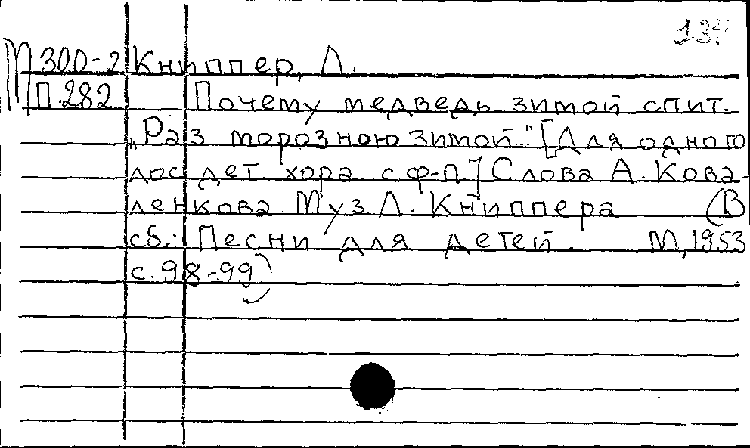 М 300-2 Книппер, Л.
П 282 Почему медведь зимой спит.
„Раз морозною зимой." [Для одного
дос дет хора с ф-п.] Слова А. Кова-
ленкова Муз Л. Книппера (В
сб.: Песни для детей. М, 1953
с. 98-99)